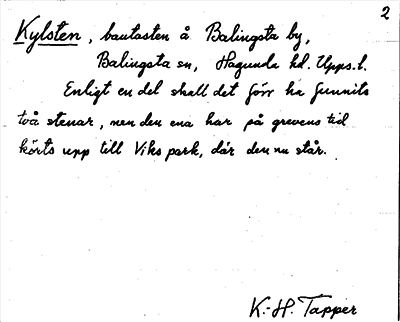 2
Kylsten, bautasten å Balingsta by,
Balingsta sn, Hagunda hd. Upps. l.
Enligt en del skall det förr ha funnits
två stenar, men den ena har på grevens tid
körts upp till Viks park, där den nu står.
K.-H. Tapper